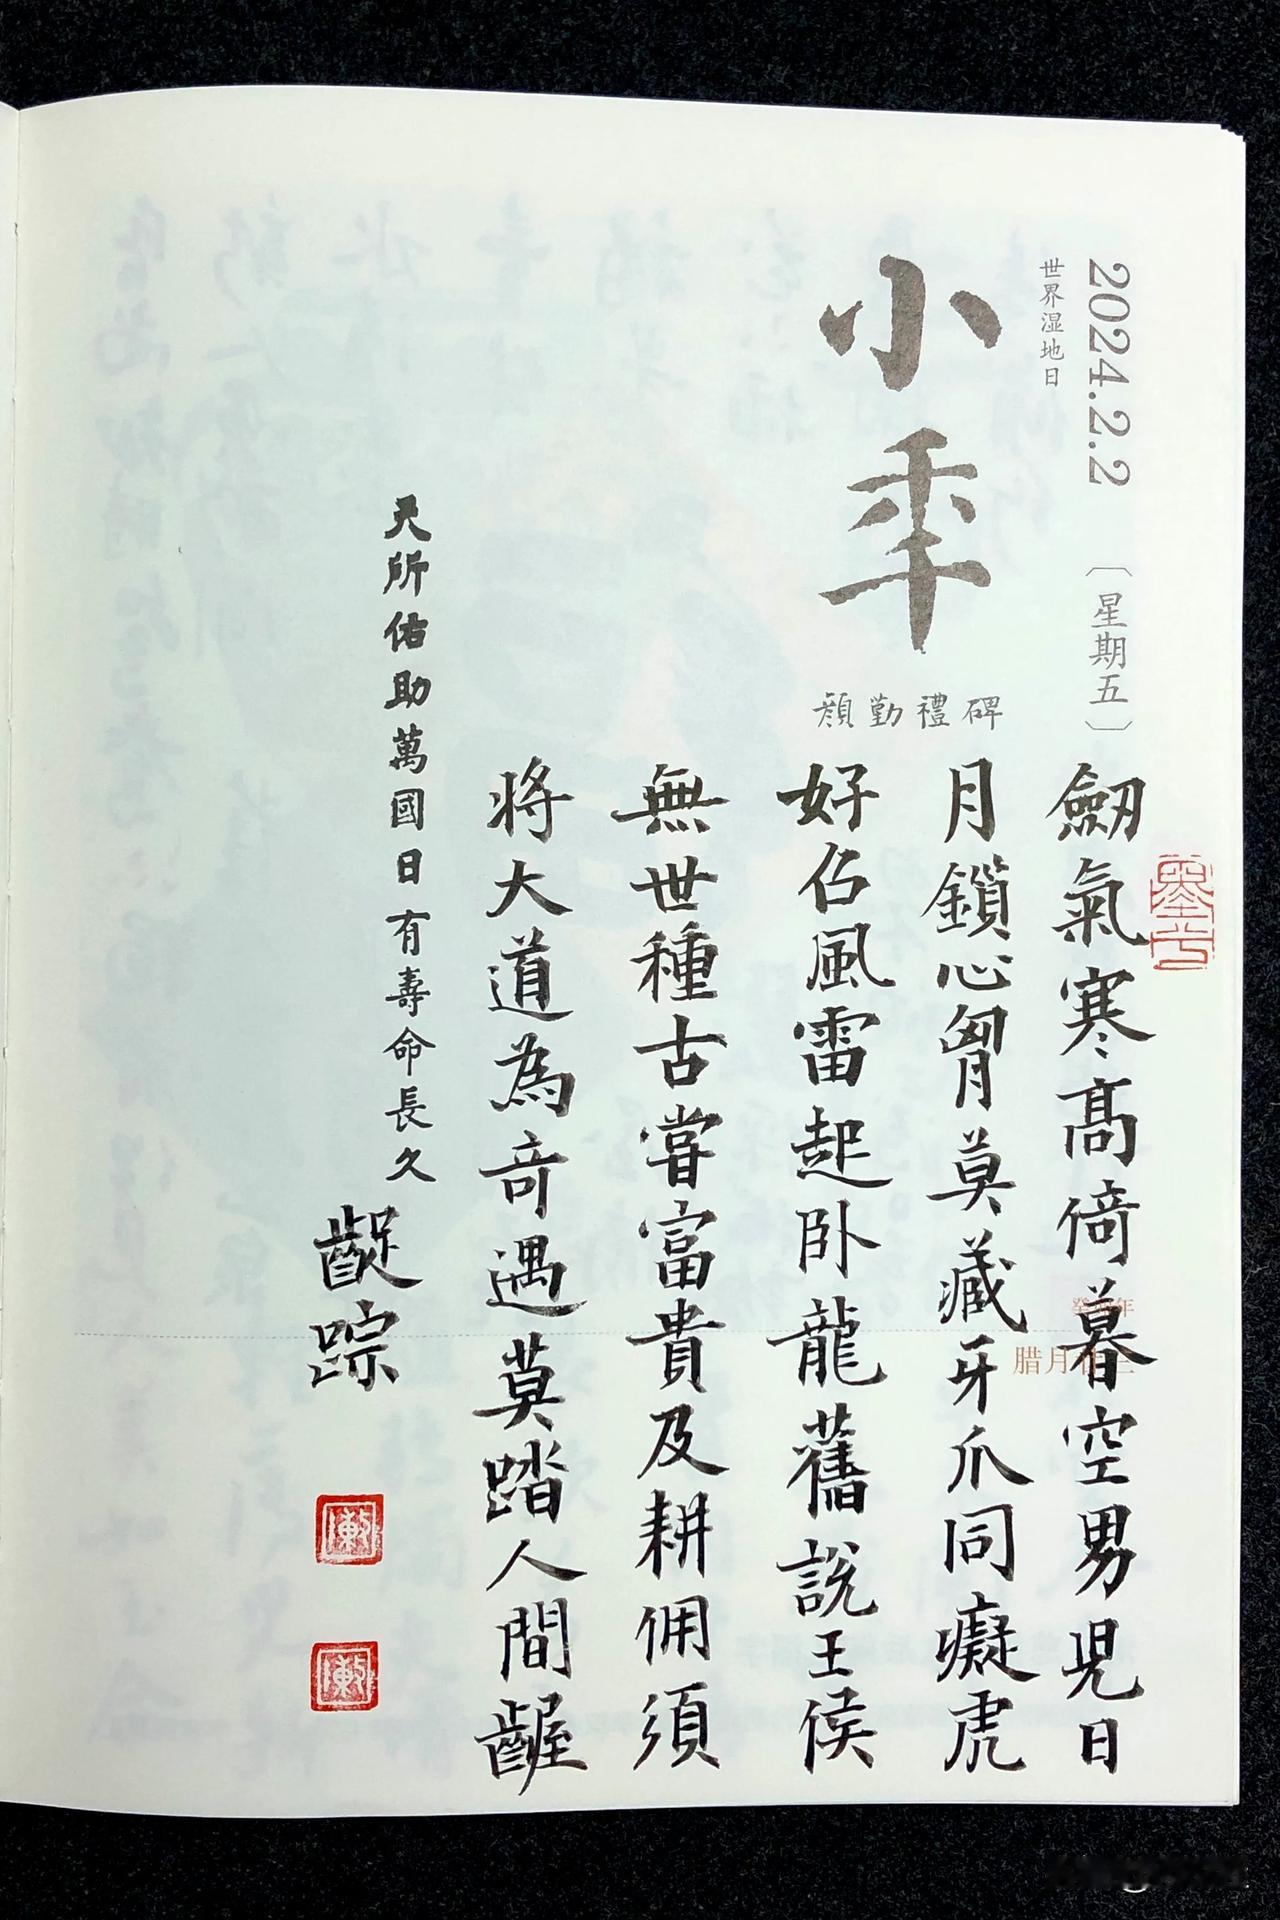 2024.2.2 〔星期五〕
世界湿地日
小年
顏勤禮碑
癸卯年
腊月廿三
劒氣寒髙倚暮空男児日
月鎖心胷莫藏牙爪同癡虎
好召風雷起卧龍舊說王侯
無世種古甞富貴及耕傭須
将大道為竒遇莫踏人間齷
齪踪
天所佑助萬國日有壽命長久